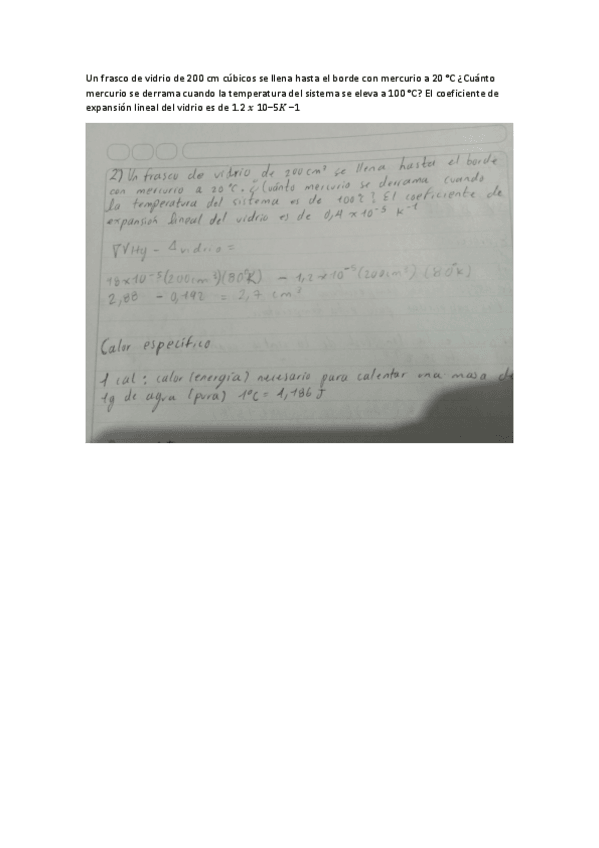 Un frasco de vidrio de 200 cm cúbicos se llena hasta el borde con mercurio a 20 °C ¿Cuánto
mercurio se derrama cuando la temperatura del sistema se eleva a 100 °C? El coeficiente de
expansión lineal del vidrio es de 1.2 𝑥 10−5𝐾 −1
2) Un frasco de vidrio de 200 cm³ se llena hasta el borde
con mercurio a 20 °C. ¿Cuánto mercurio se derrama cuando
la temperatura del sistema es de 100°C? El coeficiente de
expansión lineal del vidrio es de 0,4 x 10⁻⁵ K⁻¹
∇VHg - Δvidrio =
18x10⁻⁵(200cm³)(80°K) - 1,2x10⁻⁵(200cm³)(80°K)
2,88 - 0,192 = 2,7 cm³
Calor específico
1 cal: calor (energía) necesario para calentar una masa de
1g de agua (pura) 1°C = 1,186 J